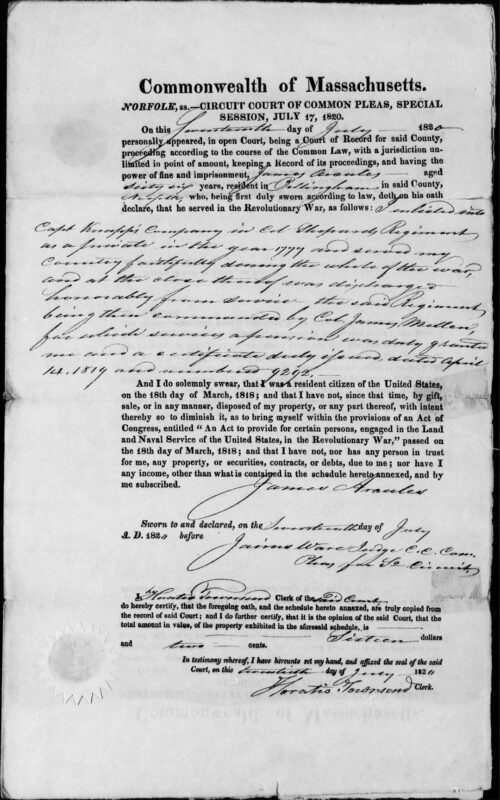 Commonwealth of Massachusetts.
NORFOLK, ss.—CIRCUIT COURT OF COMMON PLEAS, SPECIAL
SESSION, JULY 17, 1820.
On this Seventeenth day of July 1820
personally appeared, in open Court, being a Court of Record for said County,
proceeding according to the course of the Common Law, with a jurisdiction un-
limited in point of amount, keeping a Record of its proceedings, and having the
power of fine and imprisonment, James aged
sixty six years, resident in Bellingham in said County,
who, being first duly sworn according to law, doth on his oath
declare, that he served in the Revolutionary War, as follows: I enlisted into
Capt Knapps Company in Col Shepards Regiment
as a private in the year 1777 and served my
Country faithfully during the whole of the war,
and at the close thereof was discharged
honorably from service the said Regiment
being then commanded by Col. James Mellen,
for which services a pension was duly granted
me and a certificate duly issued dated April
14. 1819 and numbered
And I do solemnly swear, that I was a resident citizen of the United States,
on the 18th day of March, 1818; and that I have not, since that time, by gift,
sale, or in any manner, disposed of my property, or any part thereof, with intent
thereby so to diminish it, as to bring myself within the provisions of an Act of
Congress, entitled "An Act to provide for certain persons, engaged in the Land
and Naval Service of the United States, in the Revolutionary War," passed on
the 18th day of March, 1818; and that I have not, nor has any person in trust
for me, any property, or securities, contracts, or debts, due to me; nor have I
any income, other than what is contained in the schedule hereto annexed, and by
me subscribed.
James
Sworn to and declared, on the Seventeenth day of July
A. D. 1820 before
Jairus Ware Judge C. C. Com.
Pleas for So Circuit
I, Horatio Townsend Clerk of the said Court
do hereby certify, that the foregoing oath, and the schedule hereto annexed, are truly copied from
the record of said Court; and I do further certify, that it is the opinion of the said Court, that the
total amount in value, of the property exhibited in the aforesaid schedule, is
Sixteen dollars
and two cents.
In testimony whereof, I have hereunto set my hand, and affixed the seal of the said
Court, on this twentieth day of July 1820
Horatio Townsend Clerk.